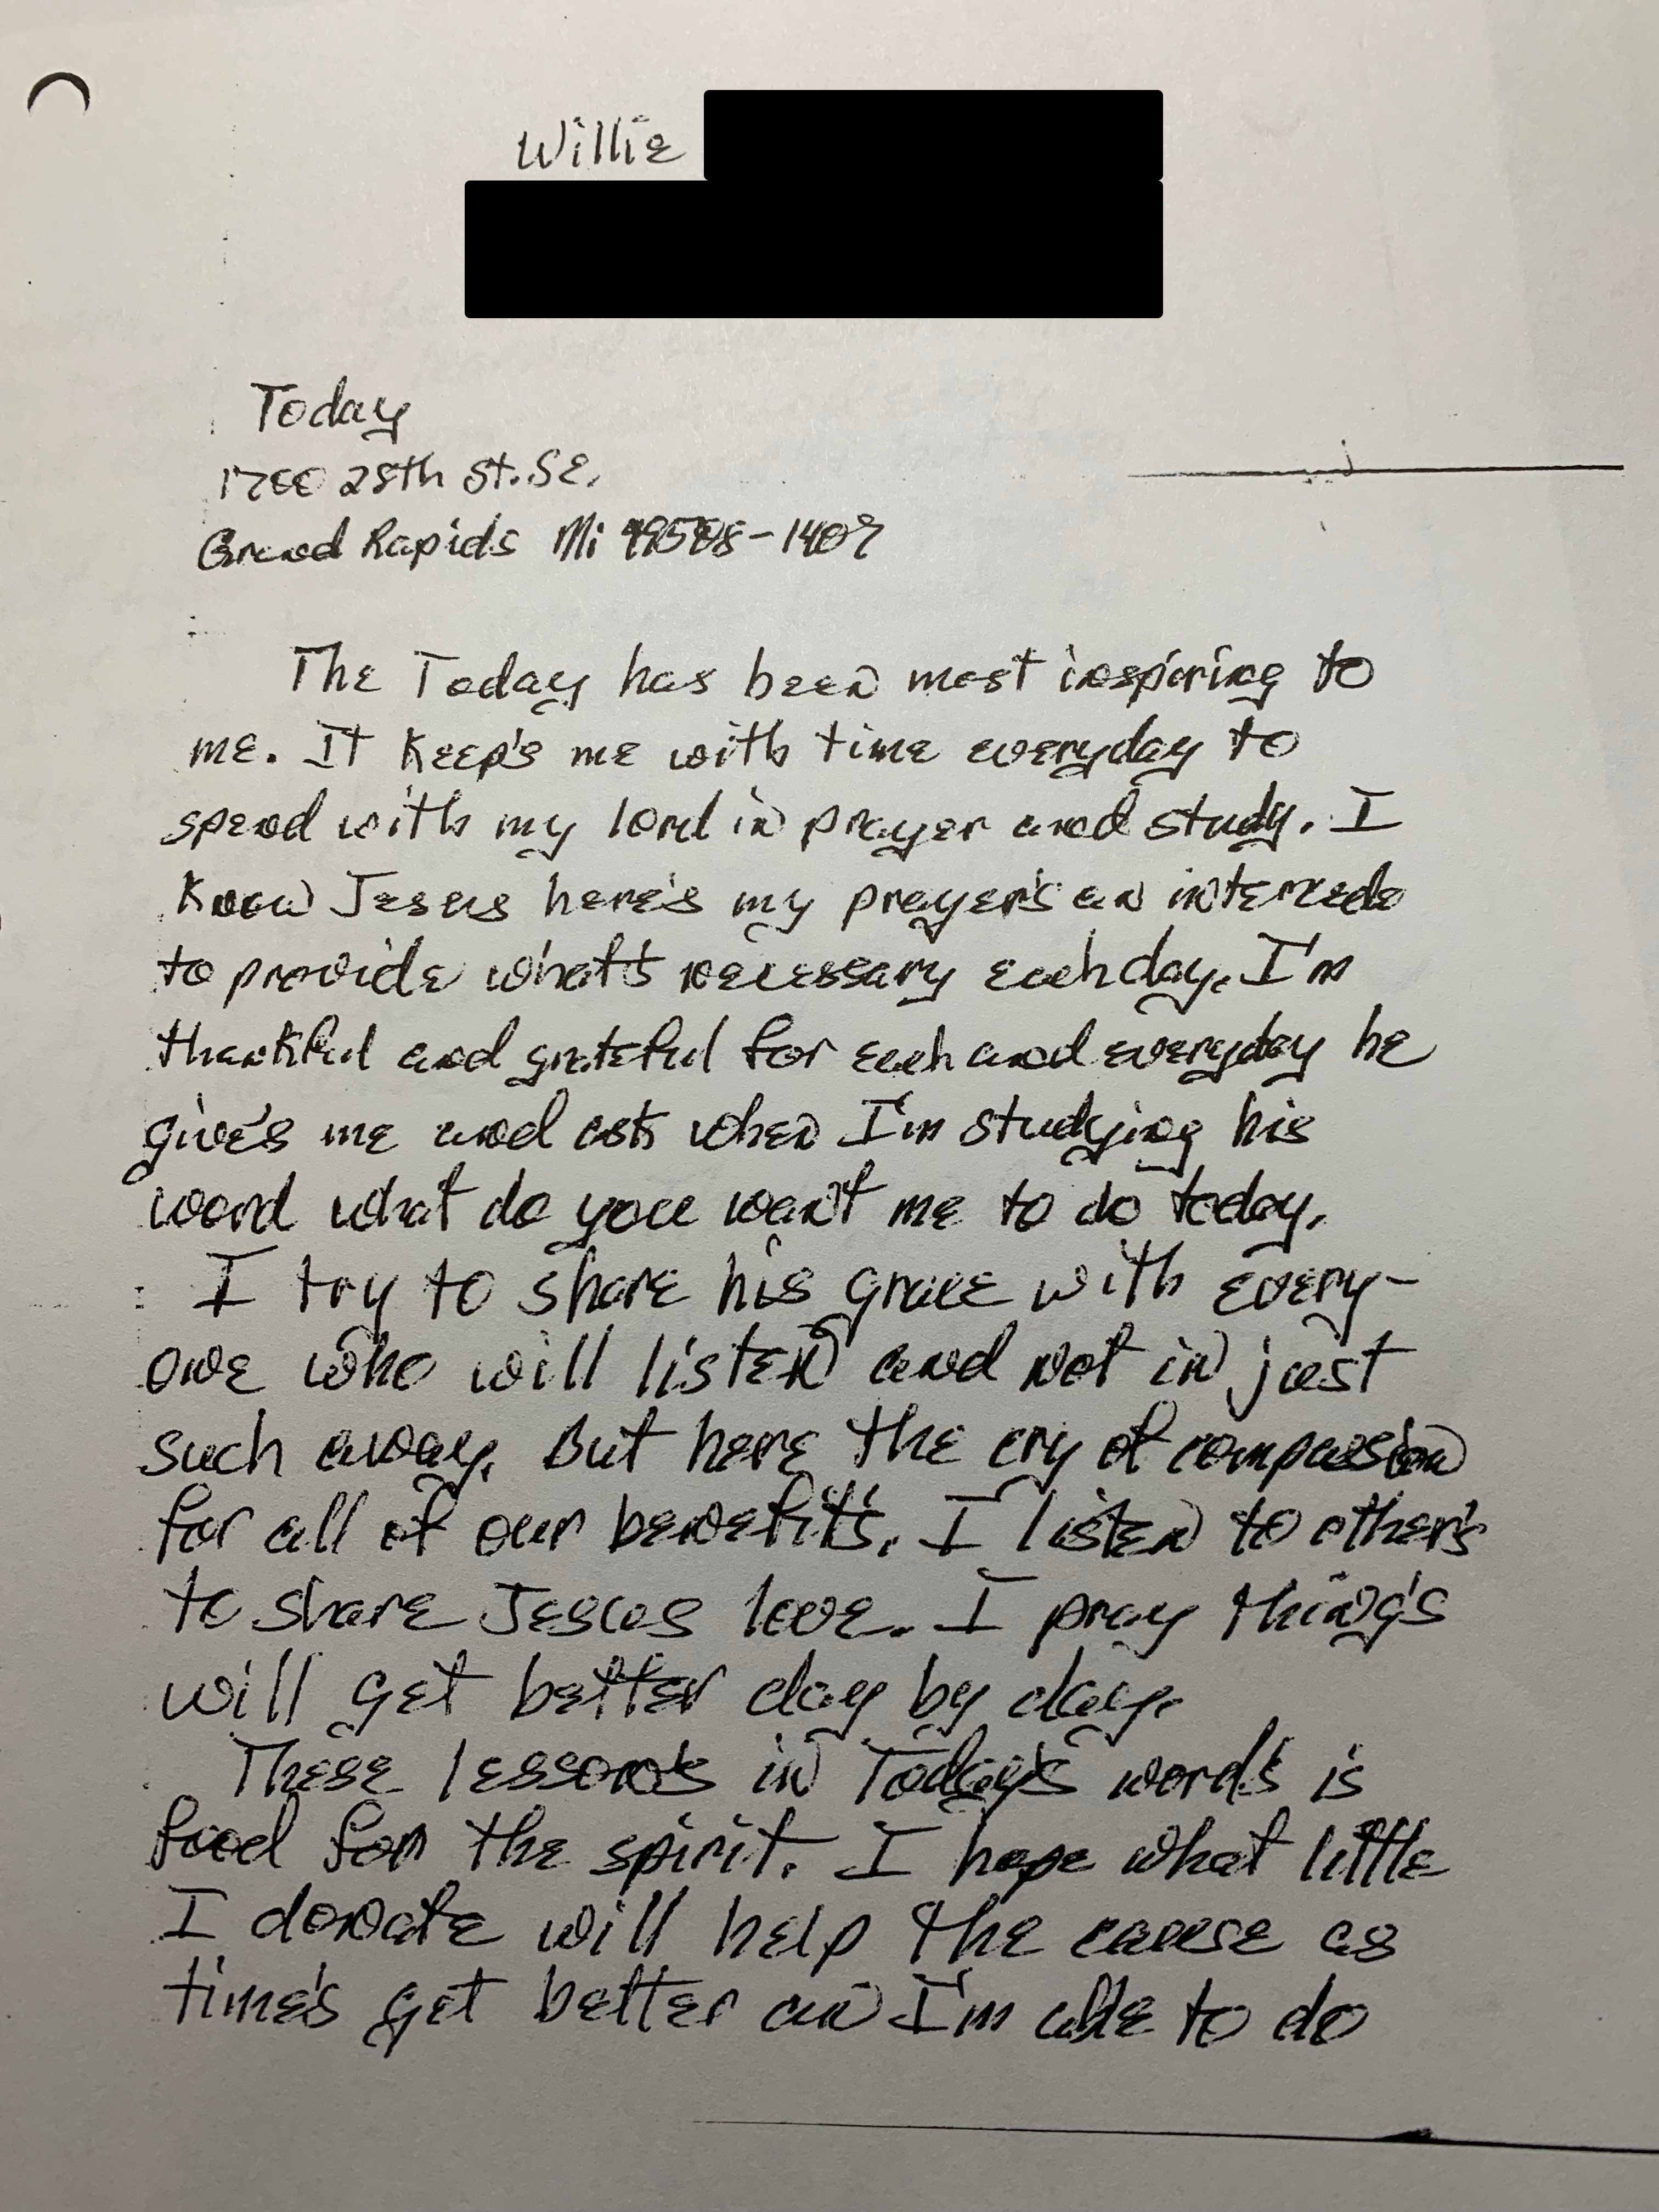 Willie
Today
1700 28th St. S.E.
Grand Rapids Mi 49508-1407
The Today has been most inspiring to
me. It keep's me with time everyday to
spend with my lord in prayer and study. I
know Jesus here's my prayer's an intercede
to provide what's necessary each day. I'm
thankful and grateful for each and everyday he
give's me and ask when I'm studying his
word what do you want me to do today.
I try to share his grace with every-
one who will listen and not in just
such away. But here the cry of compassion
for all of our benefit's. I listen to other's
to share Jesus love. I pray thing's
will get better day by day.
These lesson's in Today's word's is
food for the spirit. I hope what little
I donate will help the cause as
time's get better an I'm able to do